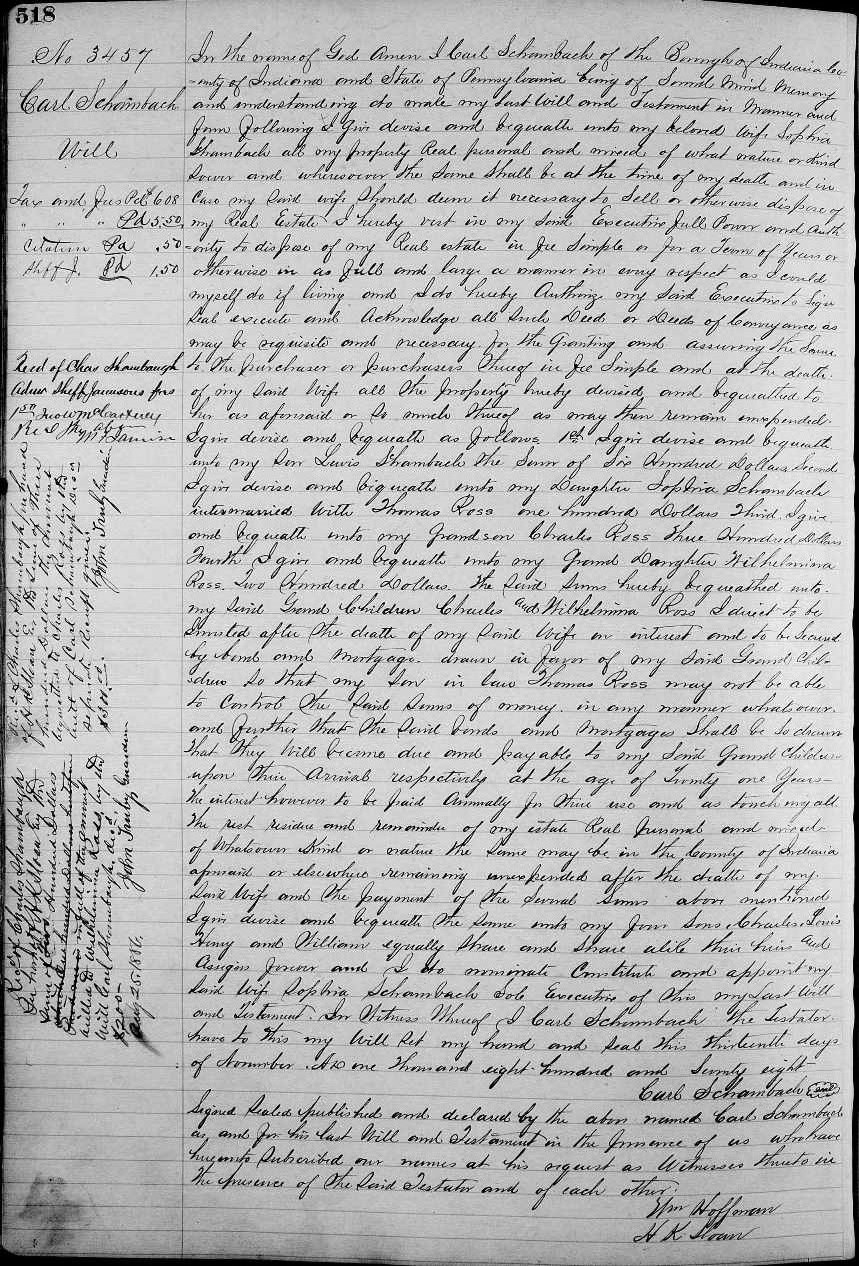 518
No 3457
Carl Schambach
Will
Tax and Fees Pd $6.08
" " " Pd 5.50
Citation Pd .50
Shff J. Pd 1.50
Recd of Chas Shambaugh
Admr Sheff Jamesons fees
In the name of God Amen I Carl Schambach of the Borough of Indiana Co-
-unty of Indiana and State of Pennsylvania being of Sound Mind Memory
and understanding do make my last Will and Testament in Manner and
form following I Give devise and bequeath unto my beloved Wife Sophia
Shambach all my property Real personal and mixed of what nature or Kind
Soever and wheresoever the Same shall be at the time of my death and in
Case my Said wife Should deem it necessary to Sell or otherwise dispose of
my Real Estate I hereby vest in my Said Executrix Full Power and Auth-
-ority to dispose of my Real estate in fee Simple or for a Term of Years or
otherwise in as full and large a manner in every respect as I could
myself do if living and I do hereby Authorize my Said Executrix to Sign
Seal execute and Acknowledge all Such Deed or Deeds of Conveyance as
may be requisite and necessary for the Granting and assuring the Same
to the purchaser or purchasers thereof in fee Simple and at the death
of my Said Wife all the Property hereby devised and bequeathed to
her as aforesaid or So much thereof as may then remain unexpended.
I give devise and bequeath as follows 1st I give devise and bequeath
unto my Son Lewis Shambach the Sum of Six Hundred Dollars Second
I give devise and bequeath unto my Daughter Sophia Schambach
intermarried With Thomas Ross one hundred Dollars Third I give
and bequeath unto my Grandson Charles Ross Three Hundred Dollars
Fourth I give and bequeath unto my Grand Daughter Wilhelmina
Ross Two Hundred Dollars. The Said Sums hereby bequeathed unto
my Said Grand Children Charles and Wilhelmina Ross I direct to be
Invested after the death of my Said Wife on interest and to be Secured
by bond and Mortgage drawn in favor of my Said Grand Chil-
-dren So that my Son in law Thomas Ross may not be able
to Control the Said Sums of money in any manner whatsoever
and further that the Said bonds and Mortgages Shall be So drawn
that they Will become due and payable to my Said Grand Children
upon their Arrival respectively at the age of Twenty one Years-
The interest however to be paid Annually for their use and as touching all
The rest residue and remainder of my estate Real Personal and mixed
of Whatsoever Kind or nature the Same may be in the County of Indiana
aforesaid or elsewhere remaining unexpended after the death of my
Said Wife and the payment of the Several Sums above mentioned
I give devise and bequeath the Same unto my four Sons, Charles, Louis
Henry and William equally Share and Share alike their heirs and
Assigns forever and I do nominate Constitute and appoint my
Said Wife Sophia Schambach Sole Executrix of this my Last Will
and Testament. In Witness Whereof I Carl Schambach the Testator
have to this my Will Set my hand and Seal this thirteenth days
of November AD one Thousand eight hundred and Seventy eight
Carl Schambach seal
Signed Sealed published and declared by the above named Carl Schambach
as and for his last Will and Testament in the Presence of us who have
hereunto Subscribed our names at his request as Witnesses thereto in
the presence of the Said Testator and of each other.
Wm Hoffman
H K Sloan
Recd of Charles Shambaugh
Wilhelmina Ross by the
Will Carl Shambaugh, decd
$200-
Aug 25, 1886.